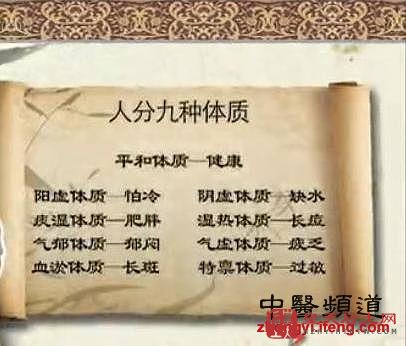 人分九种体质
平和体质—健康
阳虚体质—怕冷 阴虚体质—缺水
痰湿体质—肥胖 湿热体质—长痘
气郁体质—郁闷 气虚体质—疲乏
血淤体质—长斑 特禀体质—过敏
中醫頻道
zhongyiliteng.com